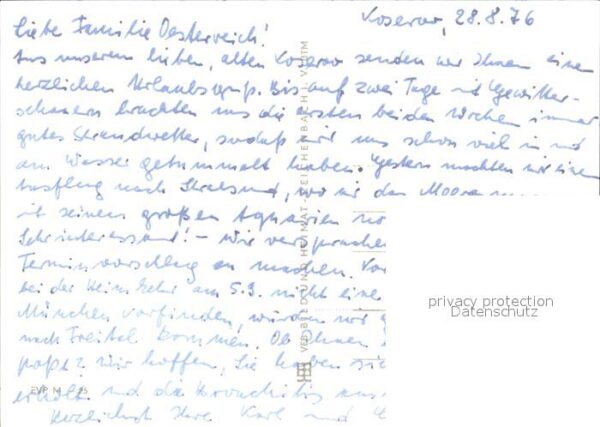 Koserow, 28.8.76
Liebe Familie Oesterreich!
Aus unserem lieben, alten Koserow senden wir Ihnen einen
herzlichen Urlaubsgruß. Bis auf zwei Tage mit Gewitter-
schauern brachten uns die ersten beiden Wochen immer
gutes Strandwetter, sodaß wir uns schon viel in und
am Wasser getummelt haben. Gestern machten wir einen
Ausflug nach Stralsund, wo wir das Meeresmu
mit seinen großen Aquarien
Sehr interessant! – Wir versprachen
Terminvorschlag zu machen.
bei der Heimkehr am 5.9. nicht eine
München vorfinden, würden wir
nach Freital kommen. Ob Ihnen
paßt? Wir hoffen, Sie haben sich
erholt und die Bronchitis aus
Herzlichst Ihre Karl und
VEB BILD UND HEIMAT · REICHENBACH I. VOGTM
EVP M
privacy protection
Datenschutz